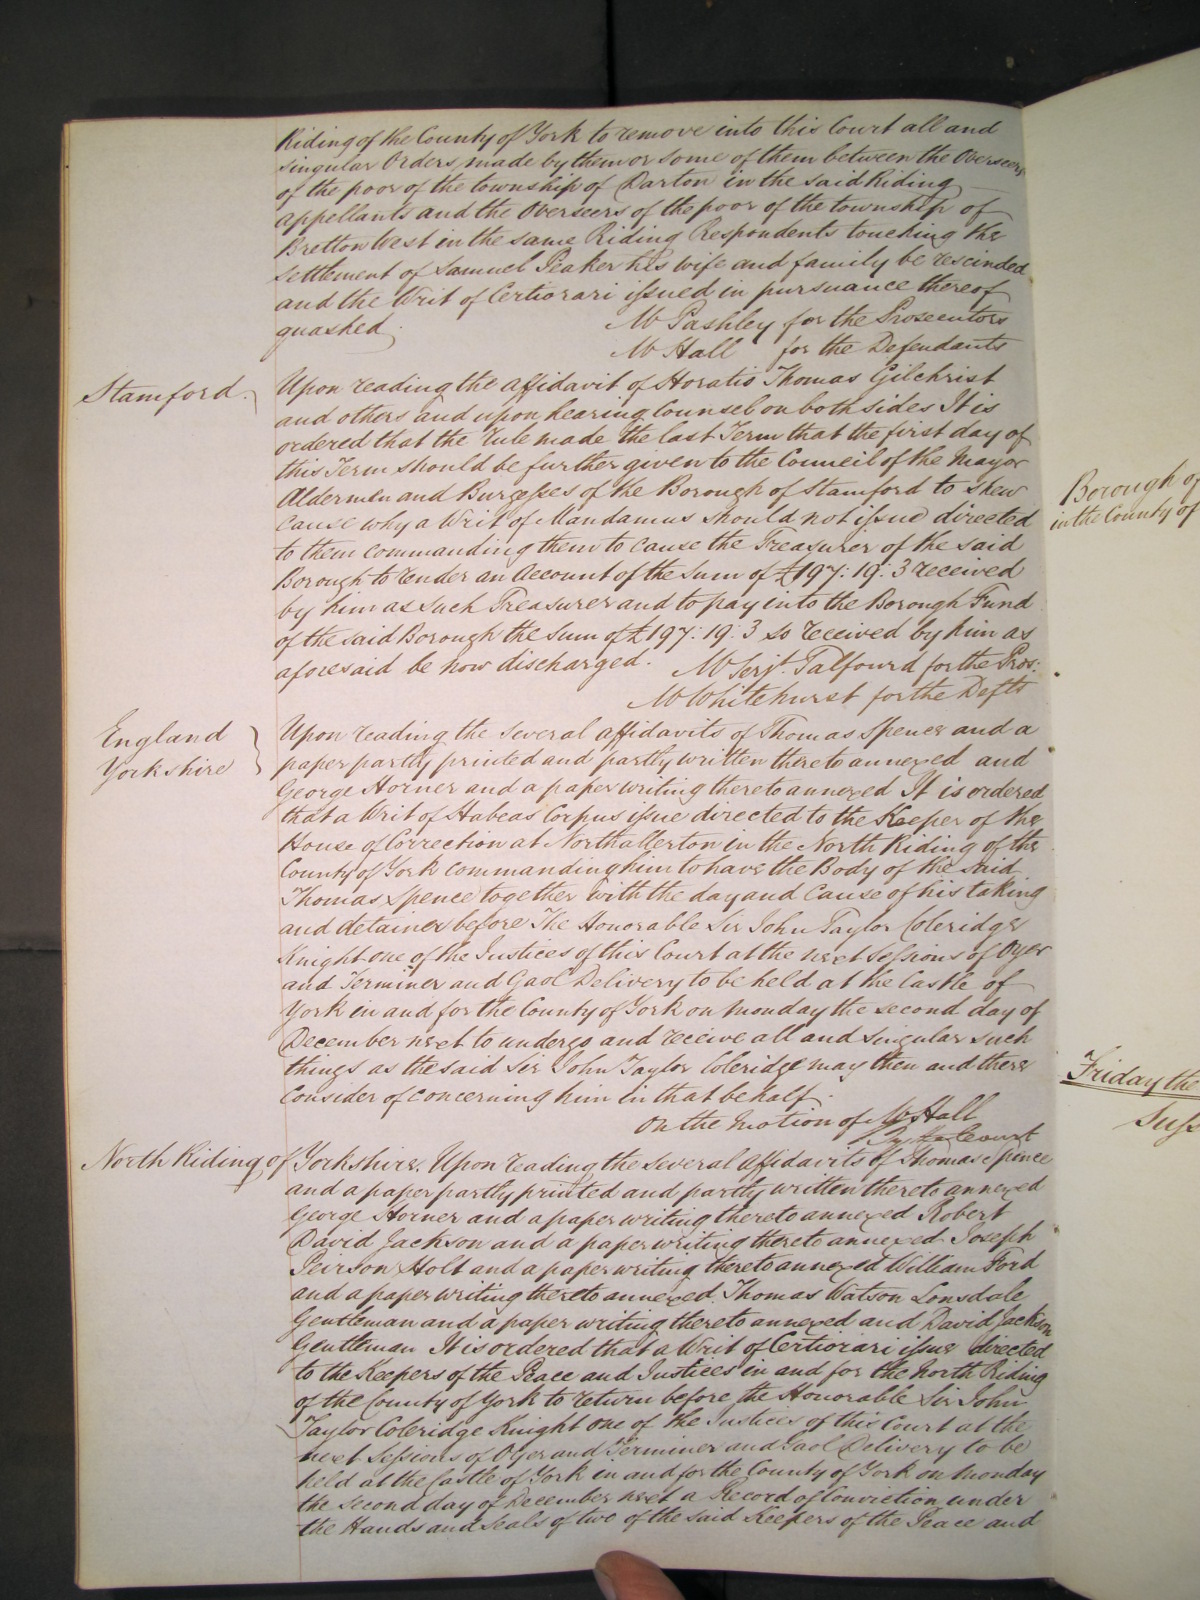 Riding of the County of York to remove into this Court all and
singular Orders made by them or some of them between the Overseers
of the poor of the township of Darton in the said Riding
appellants and the Overseers of the poor of the township of
Bretton West in the same Riding Respondents touching the
settlement of Samuel Peaker his wife and family be rescinded
and the Writ of Certiorari issued in pursuance thereof
quashed.
Mr Pashley for the Prosecutors
Mr Hall for the Defendants
Stamford.
Upon reading the affidavit of Horatio Thomas Gilchrist
and others and upon hearing Counsel on both sides It is
ordered that the rule made the last Term that the first day of
this Term should be further given to the Council of the Mayor
Aldermen and Burgesses of the Borough of Stamford to shew
cause why a Writ of Mandamus should not issue directed
to them commanding them to cause the Treasurer of the said
Borough to render an Account of the Sum of £197: 19: 3 received
by him as such Treasurer and to pay into the Borough Fund
of the said Borough the Sum of £197: 19: 3 so received by him as
aforesaid be now discharged.
Mr Serjt. Talfourd for the Pros:
Mr Whitehurst for the Defts
England
Yorkshire
Upon reading the several affidavits of Thomas Spence and a
paper partly printed and partly written thereto annexed and
George Horner and a paper writing thereto annexed It is ordered
that a Writ of Habeas Corpus issue directed to the Keeper of the
House of Correction at Northallerton in the North Riding of the
County of York commanding him to have the Body of the said
Thomas Spence together with the day and Cause of his taking
and detainer before The Honorable Sir John Taylor Coleridge
Knight one of the Justices of this Court at the next Sessions of Oyer
and Terminer and Gaol Delivery to be held at the Castle of
York in and for the County of York on Monday the second day of
December next to undergo and receive all and singular such
things as the said Sir John Taylor Coleridge may then and there
Consider of concerning him in that behalf.
On the Motion of Mr Hall
By the Court
North Riding of Yorkshire. Upon reading the several affidavits of Thomas Spence
and a paper partly printed and partly written thereto annexed
George Horner and a paper writing thereto annexed Robert
David Jackson and a paper writing thereto annexed Joseph
Peirson Holt and a paper writing thereto annexed William Ford
and a paper writing thereto annexed Thomas Watson Lonsdale
Gentleman and a paper writing thereto annexed and David Jackson
Gentleman It is ordered that a Writ of Certiorari issue directed
to the Keepers of the Peace and Justices in and for the North Riding
of the County of York to return before the Honorable Sir John
Taylor Coleridge Knight one of the Justices of this Court at the
next Sessions of Oyer and Terminer and Gaol Delivery to be
held at the Castle of York in and for the County of York on Monday
the second day of December next a Record of Conviction under
the Hands and Seals of two of the said Keepers of the Peace and
Borough of
in the County of
Friday the